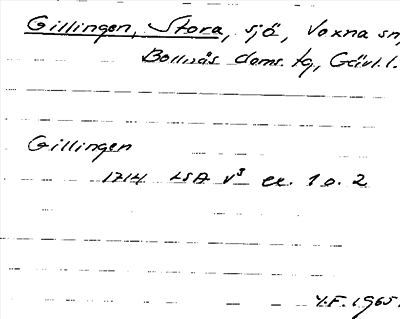 Gillingen, Stora, sjö, Voxna sn,
Bollnäs doms. tg, Gävl. l.
Gillingen
1714 LSA V³ ex. 1 o. 2
Y.F. 1965.